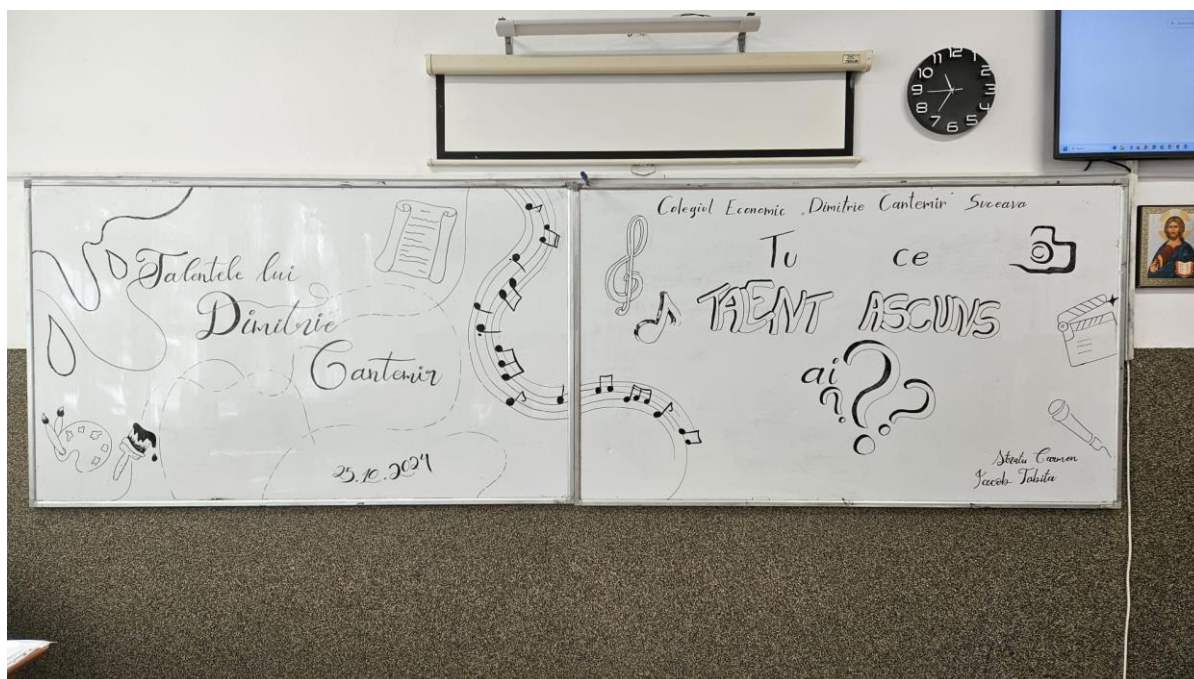 Talentele lui
Dimitrie
Cantemir
25.10.2024
Colegiul Economic „Dimitrie Cantemir” Suceava
Tu ce
TALENT ASCUNS
ai ?
Stratu Carmen
Iacob Tabita
11 12 1
10 2
9 3
8 4
7 6 5